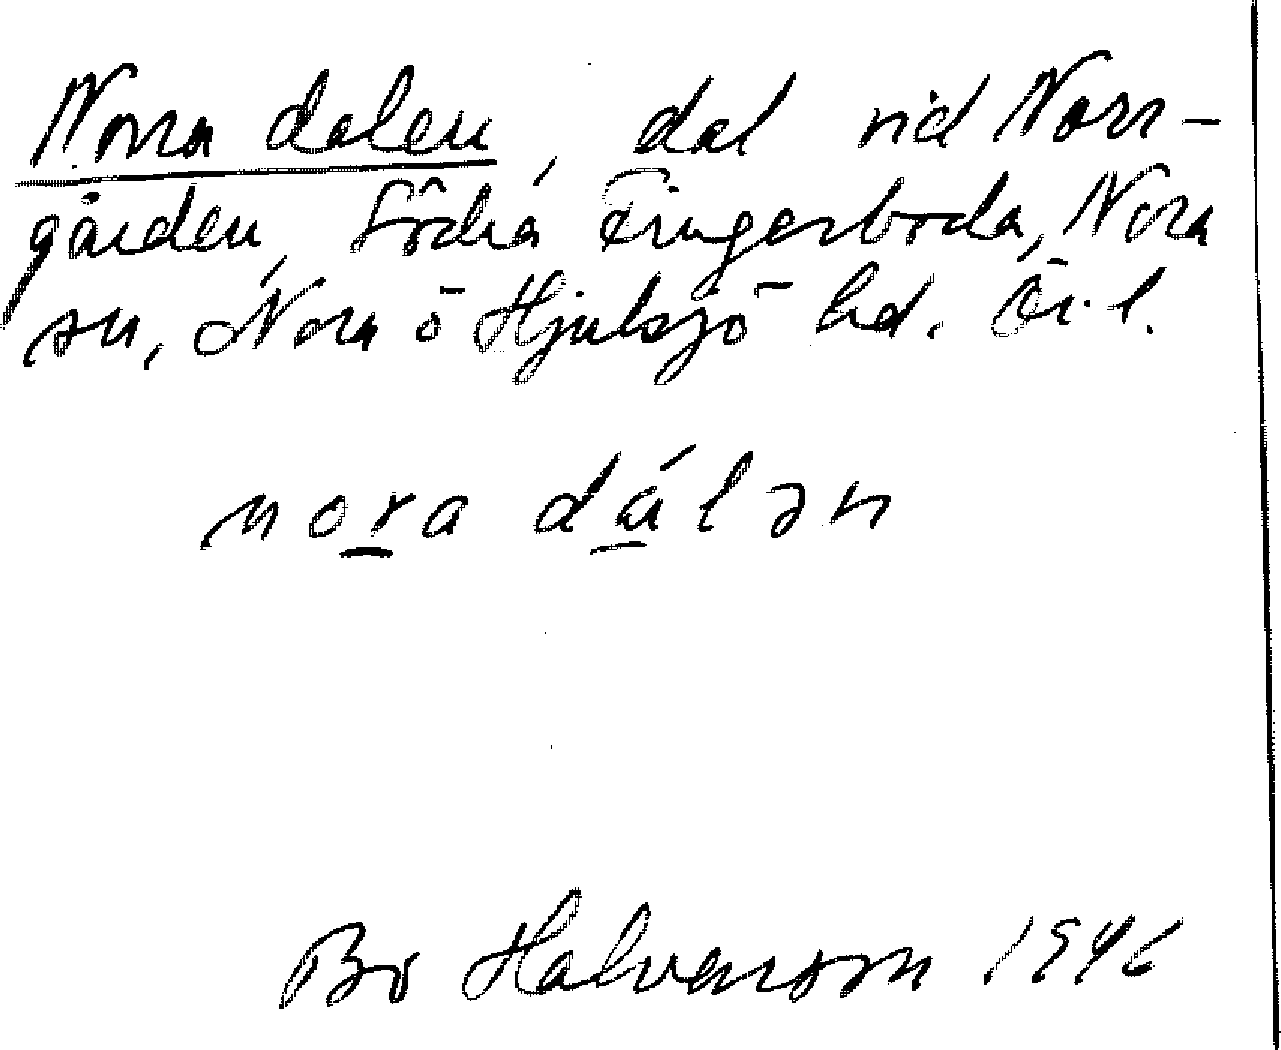 Norra dalen, dal vid Norr-
gården, Södra Fingerboda, Nora
sn, Nora o Hjulsjö hd. Ör. l.
nora dálən
Bo Halvarsson 1946